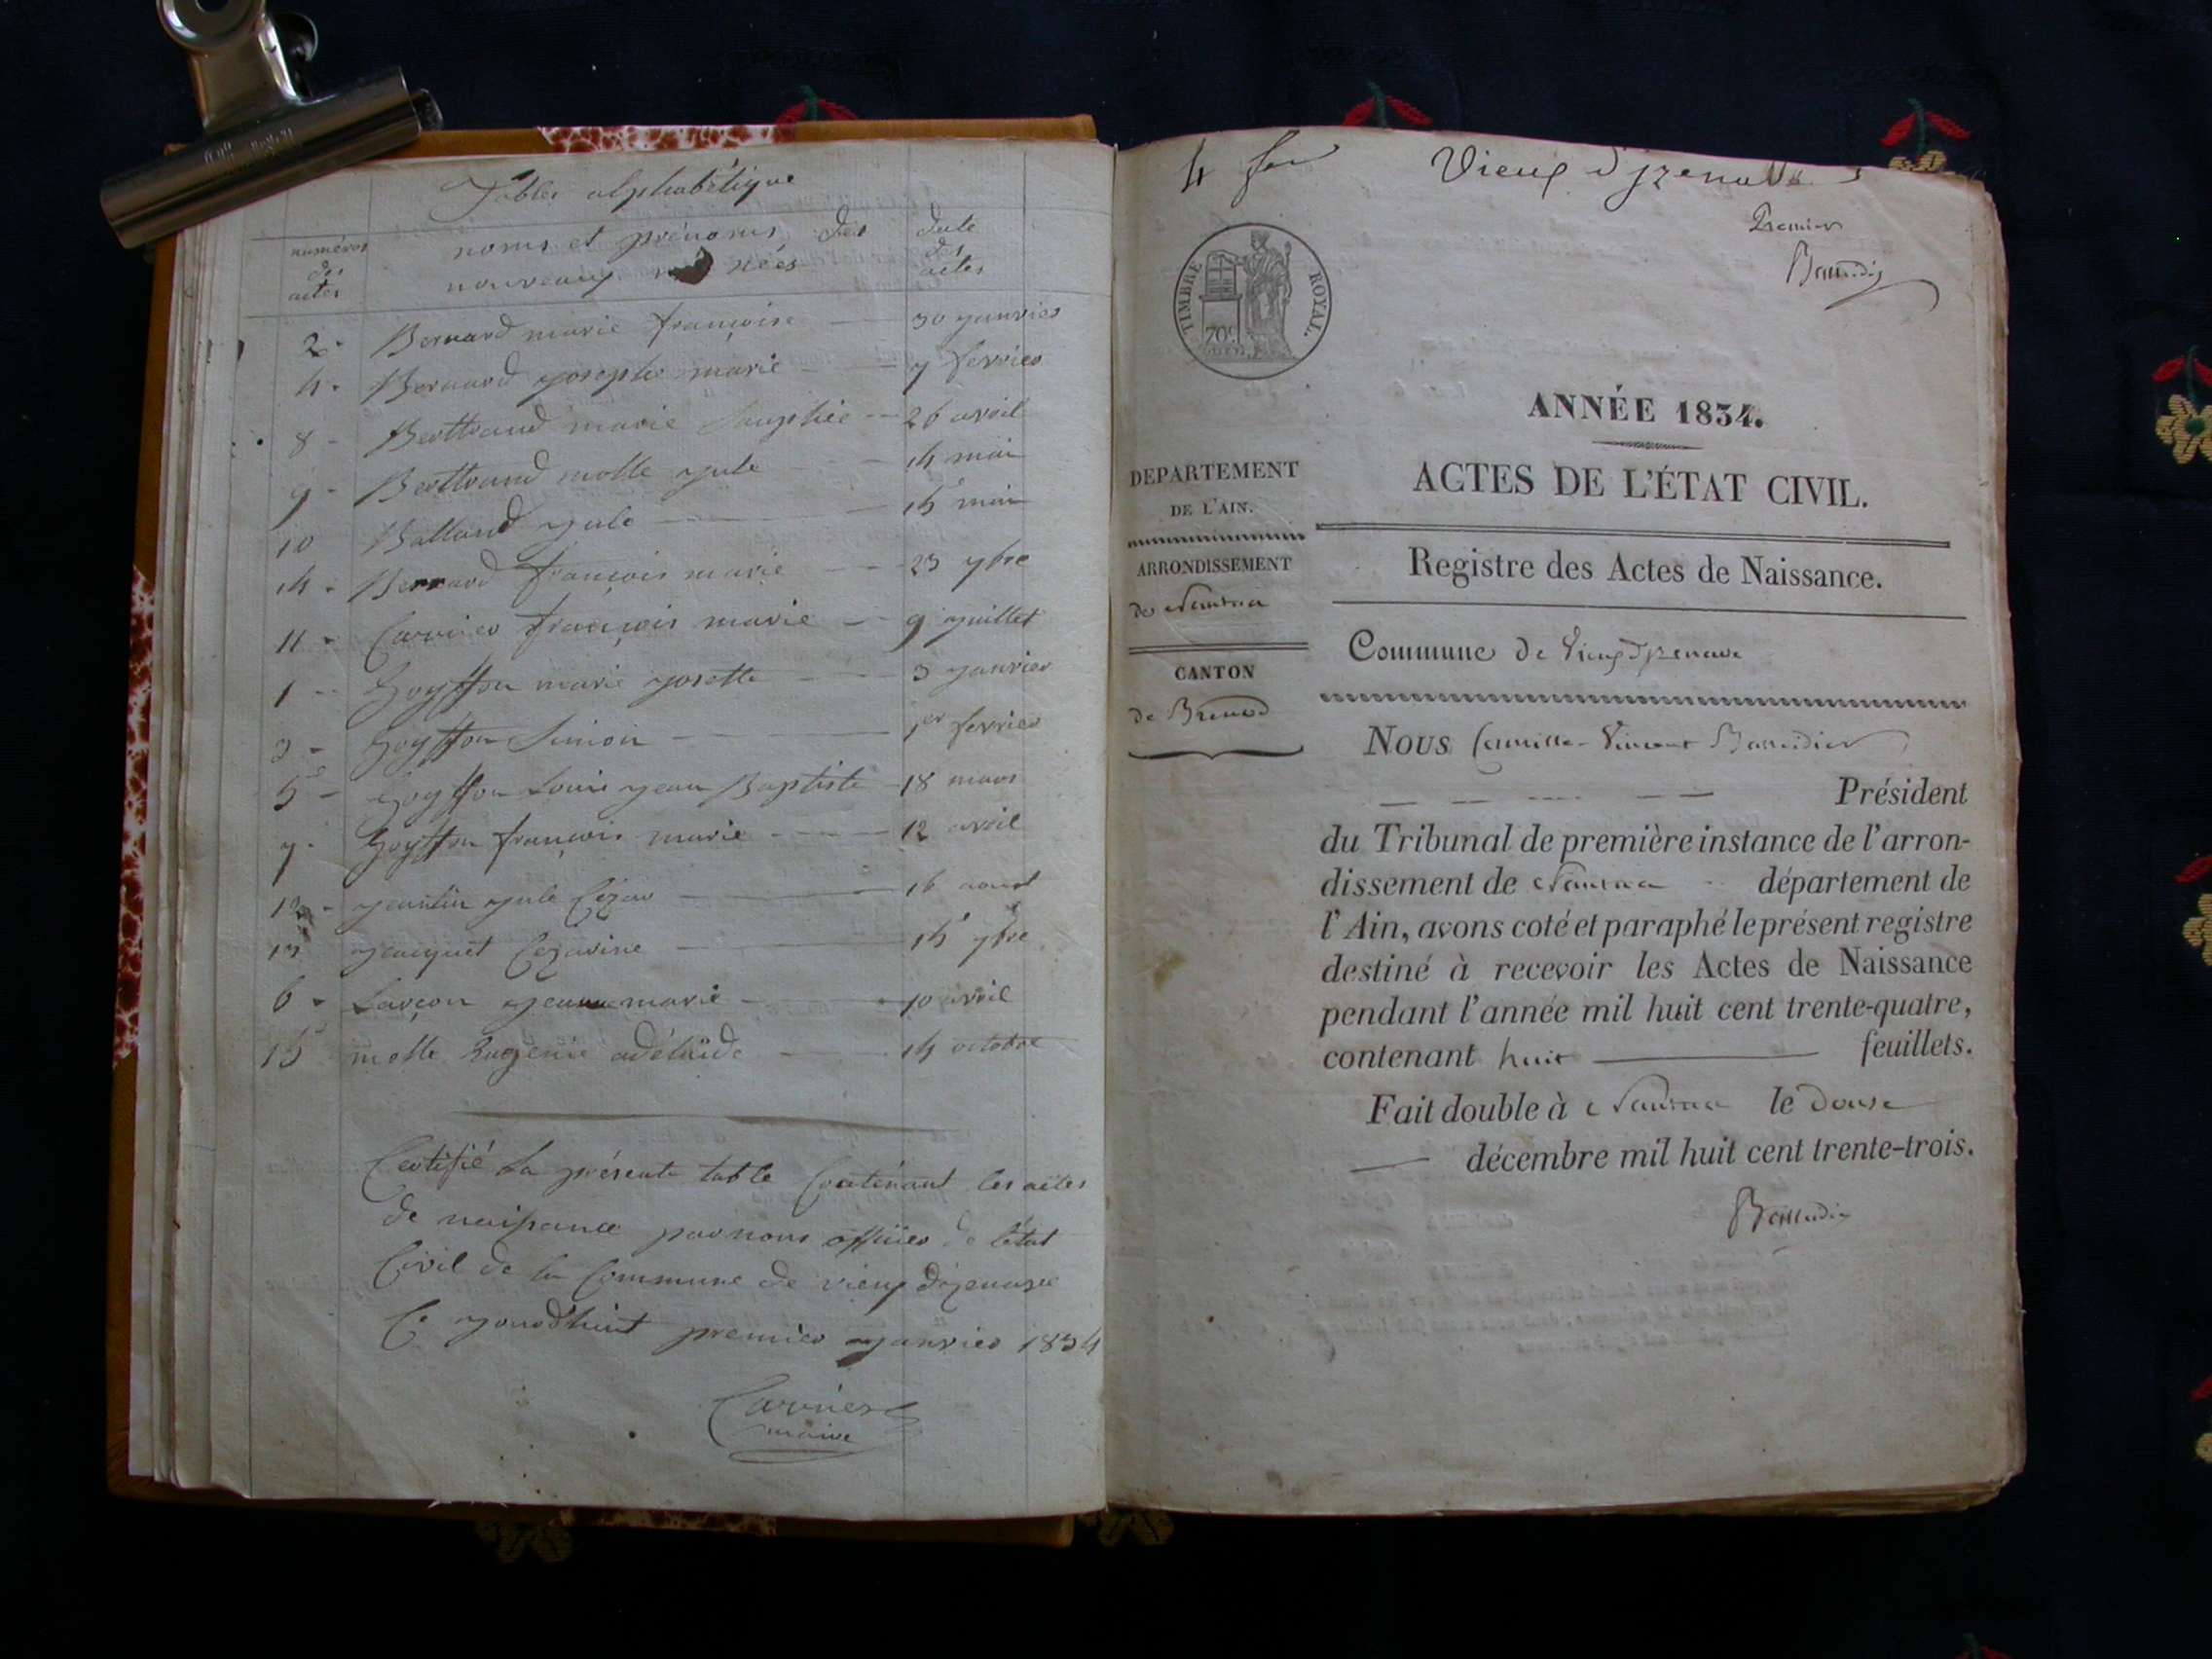 Tables alphabétique
numéros des actes
noms et prénoms des nouveaux nés
date des actes
2 - Bernard marie françoise - 30 janvier
4 - Bernard josephe marie - 7 fevrier
8 - Berttrand marie Sauphie - 26 avril
9 - Berttrand molle jule - 14 mai
10 Balland jule - 15 mai
14 - Bernard françois marie - 23 7bre
11 - Carrier françois marie - 9 juillet
1 - Goyffon marie josette - 3 janvier
3 - Goyffon Simon - 1er fevrier
5 - Goyffon Louis jean Baptiste - 18 mars
7 - Goyffon françois marie - 12 avril
12 - jeantin jule Cézar - 16 aoust
13 jacquet Cezarine - 15 7bre
6 - Lançon jeanne marie - 10 avril
15 molle Eugenie adélaïde - 14 octobre
Certifié La présente table Contenant les actes
de naissance par nous officier de l'état
Civil de la Commune de vieux d'izenave
Ce jourd'huit premier janvier 1834
Carrier
maire
4 fer Vieux d'izenave
Premier
Baudin
TIMBRE ROYAL.
70c.
ANNÉE 1834.
ACTES DE L'ÉTAT CIVIL.
DEPARTEMENT
DE L'AIN.
ARRONDISSEMENT
de Nantua
CANTON
de Brénod
Registre des Actes de Naissance.
Commune de Vieux d'izenave
Nous Camille Vincent
Président
du Tribunal de première instance de l'arron-
dissement de Nantua département de
l'Ain, avons coté et paraphé le présent registre
destiné à recevoir les Actes de Naissance
pendant l'année mil huit cent trente-quatre,
contenant huit feuillets.
Fait double à Nantua le douze
décembre mil huit cent trente-trois.